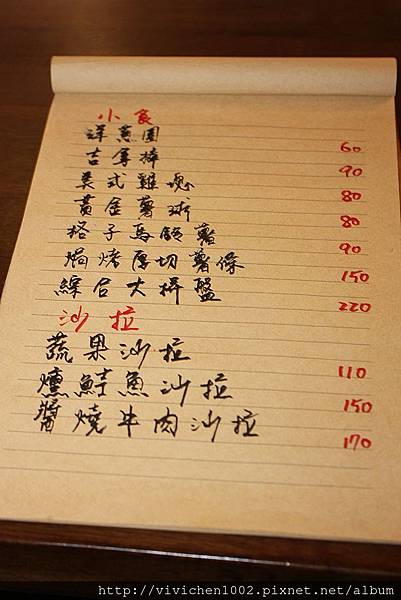 小食
洋蔥圈 60
吉拿棒 90
美式雞塊 80
黃金薯球 80
格子馬鈴薯 90
焗烤厚切薯條 150
綜合大拼盤 220
沙拉
蔬果沙拉 110
燻鮭魚沙拉 150
醬燒牛肉沙拉 170
http://vivichen1002.pixnet.net/album